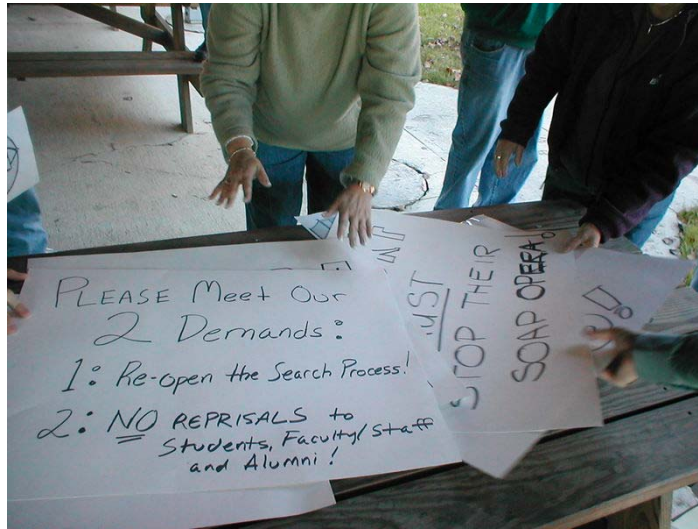 PLEASE Meet Our
2 Demands:
1: Re-open the Search Process!
2: NO REPRISALS to
Students, Faculty/Staff
and Alumni!
STOP THEIR
SOAP OPERA!